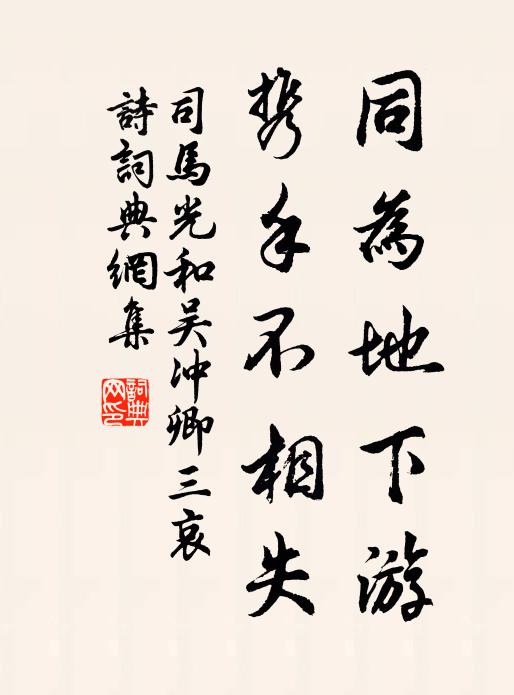 同為地下游
携手不相失
司馬光和吴冲卿三哀
詩詞典網集
詞典网印